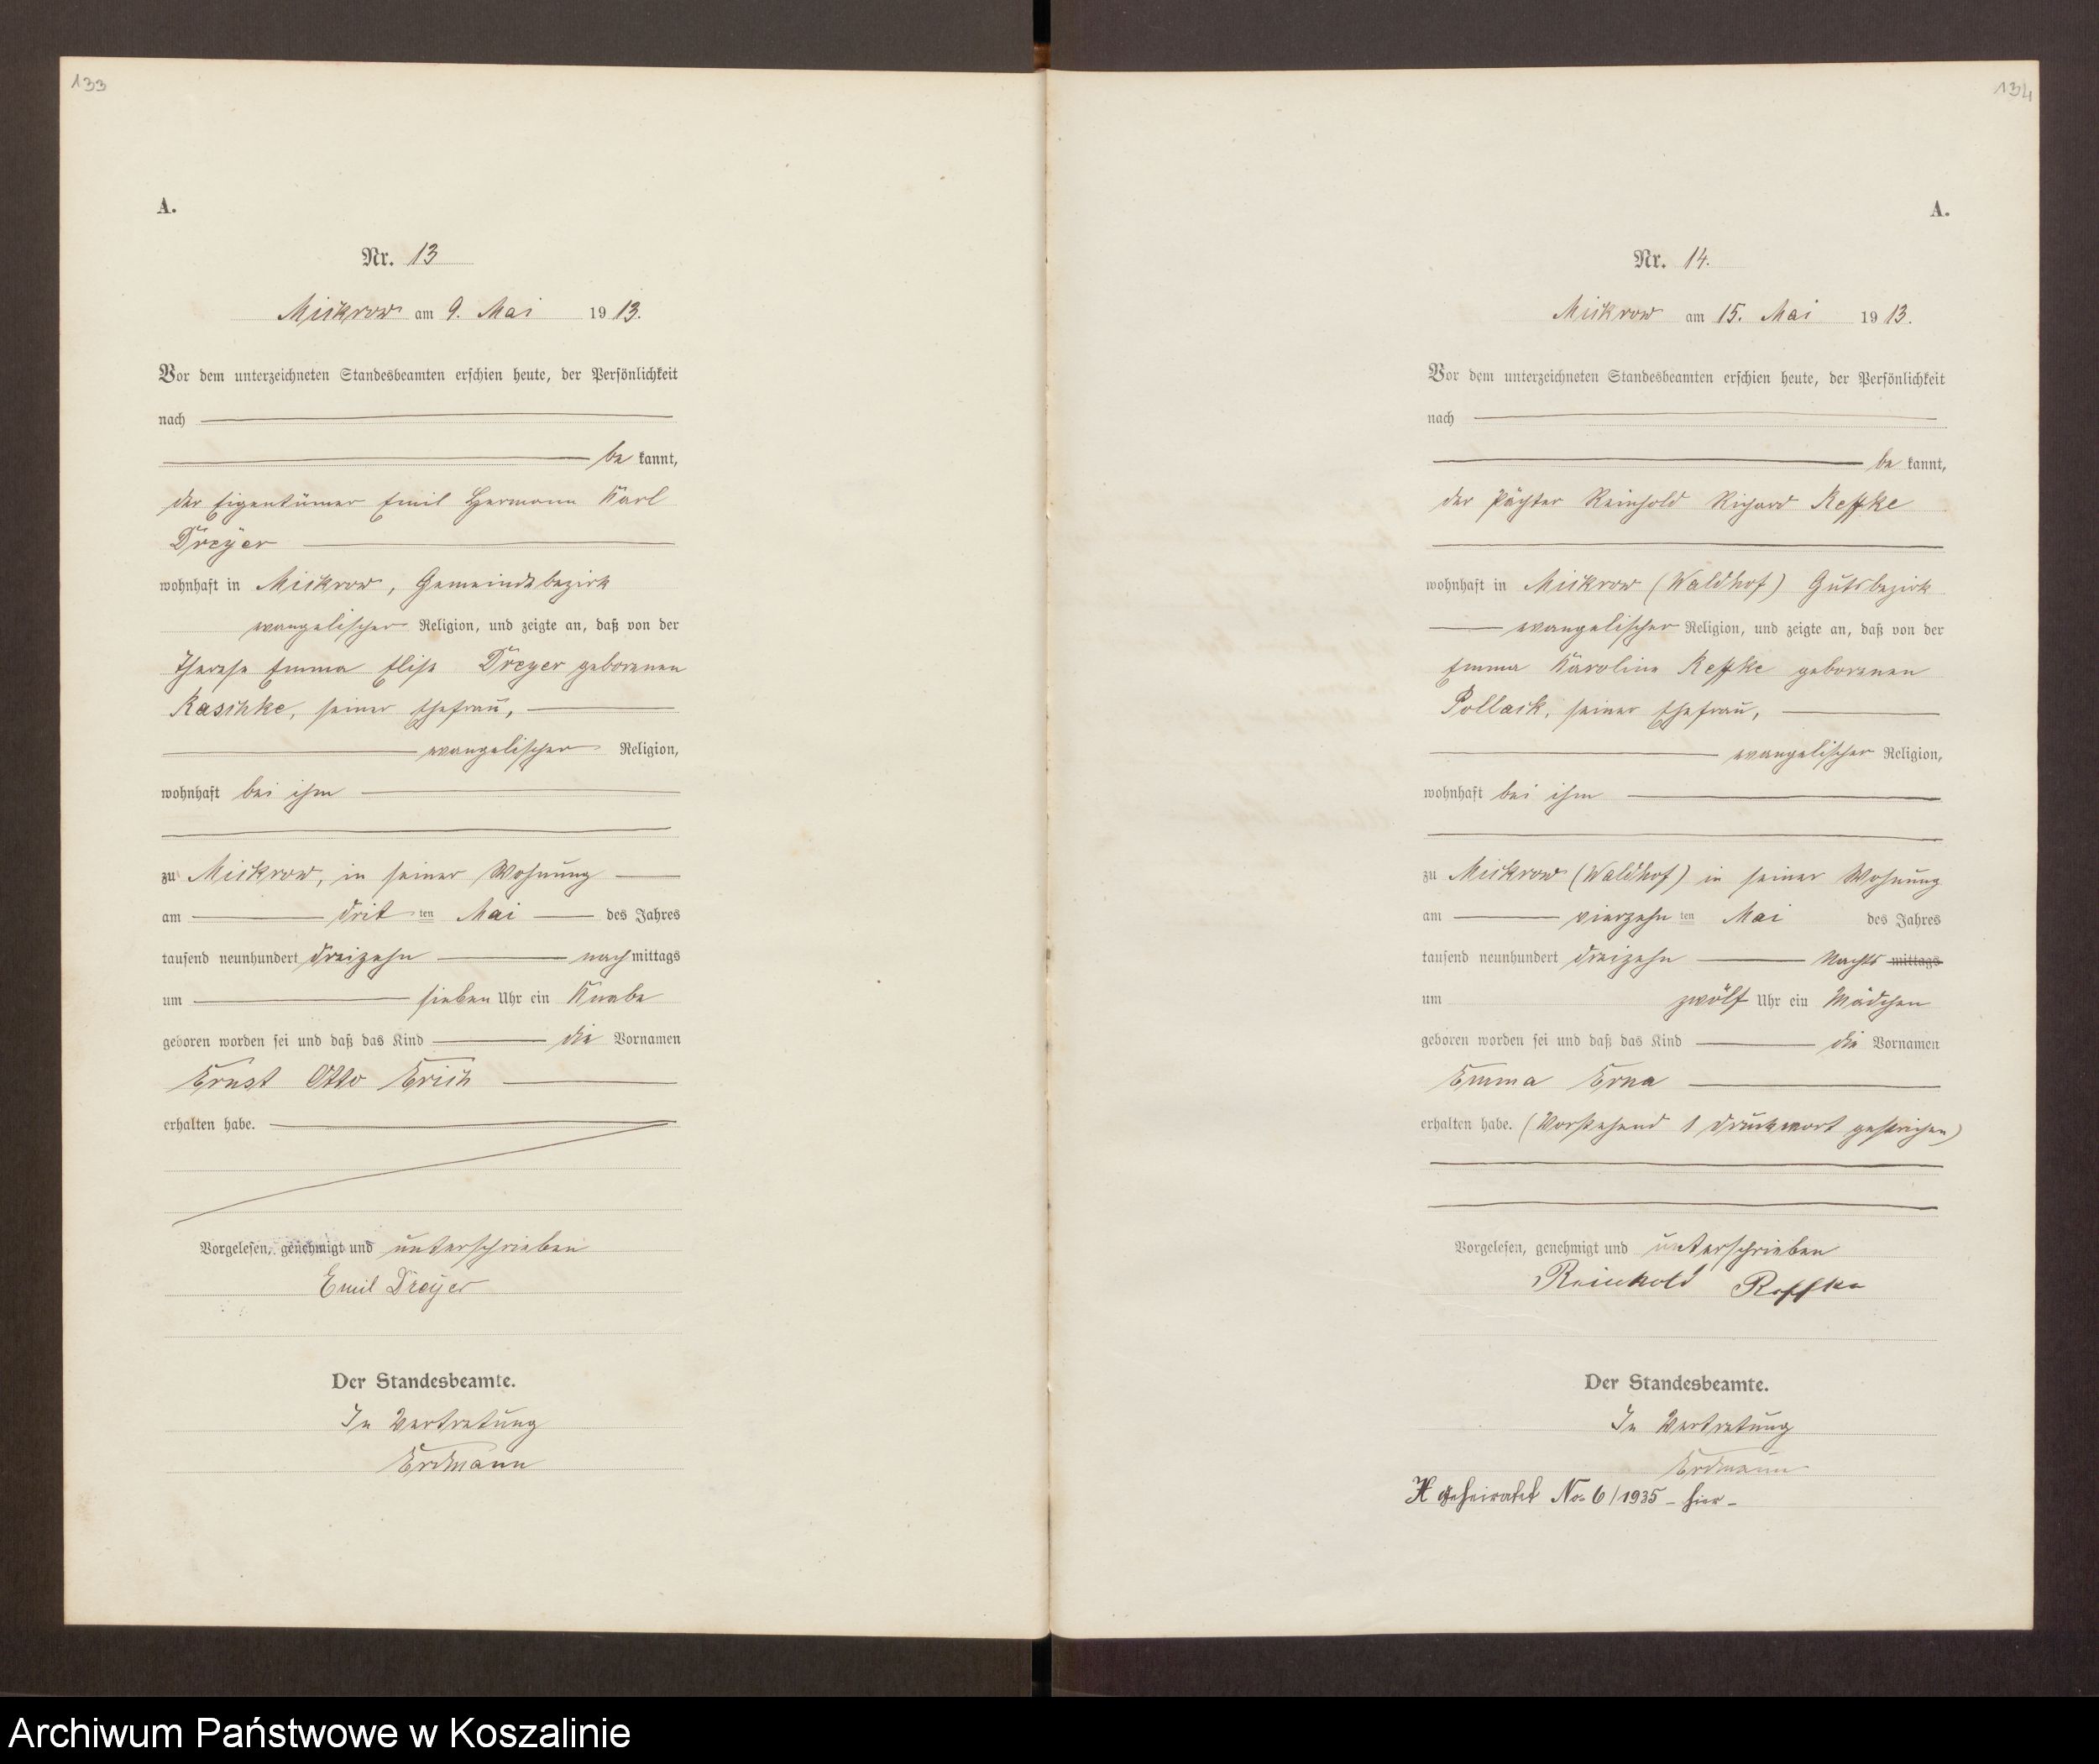 133
A.
Nr. 13
Mickrow am 9. Mai 1913.
Vor dem unterzeichneten Standesbeamten erschien heute, der Persönlichkeit
nach
be kannt,
der Eigentümer Emil Hermann Karl
Dreÿer
wohnhaft in Mickrow, Gemeindebezirk
evangelischer Religion, und zeigte an, daß von der
Therese Emma Elise Dreyer geborenen
Raschke, seiner Ehefrau,
evangelischer Religion,
wohnhaft bei ihm
zu Mickrow, in seiner Wohnung
am drit ten Mai des Jahres
tausend neunhundert dreizehn nachmittags
um sieben Uhr ein Knabe
geboren worden sei und daß das Kind die Vornamen
Ernst Otto Erich
erhalten habe.
Vorgelesen, genehmigt und unterschrieben
Emil Dreÿer
Der Standesbeamte.
In Vertretung
Erdmann
134
A.
Nr. 14.
Mickrow am 15. Mai 1913.
Vor dem unterzeichneten Standesbeamten erschien heute, der Persönlichkeit
nach
be kannt,
der Pächter Reinhold Richard Reffke
wohnhaft in Mickrow (Waldhof) Gutsbezirk
evangelischer Religion, und zeigte an, daß von der
Emma Karoline Reffke geborenen
Pollack, seiner Ehefrau,
evangelischer Religion,
wohnhaft bei ihm
zu Mickrow (Waldhof) in seiner Wohnung
am vierzehn ten Mai des Jahres
tausend neunhundert dreizehn Nachts mittags
um zwölf Uhr ein Mädchen
geboren worden sei und daß das Kind die Vornamen
Emma Erna
erhalten habe. (Vorstehend 1 Druckwort gestrichen)
Vorgelesen, genehmigt und unterschrieben
Reinhold Reffke
Der Standesbeamte.
In Vertretung
Erdmann
H geheiratet No. 6/1935 - hier -
Archiwum Państwowe w Koszalinie